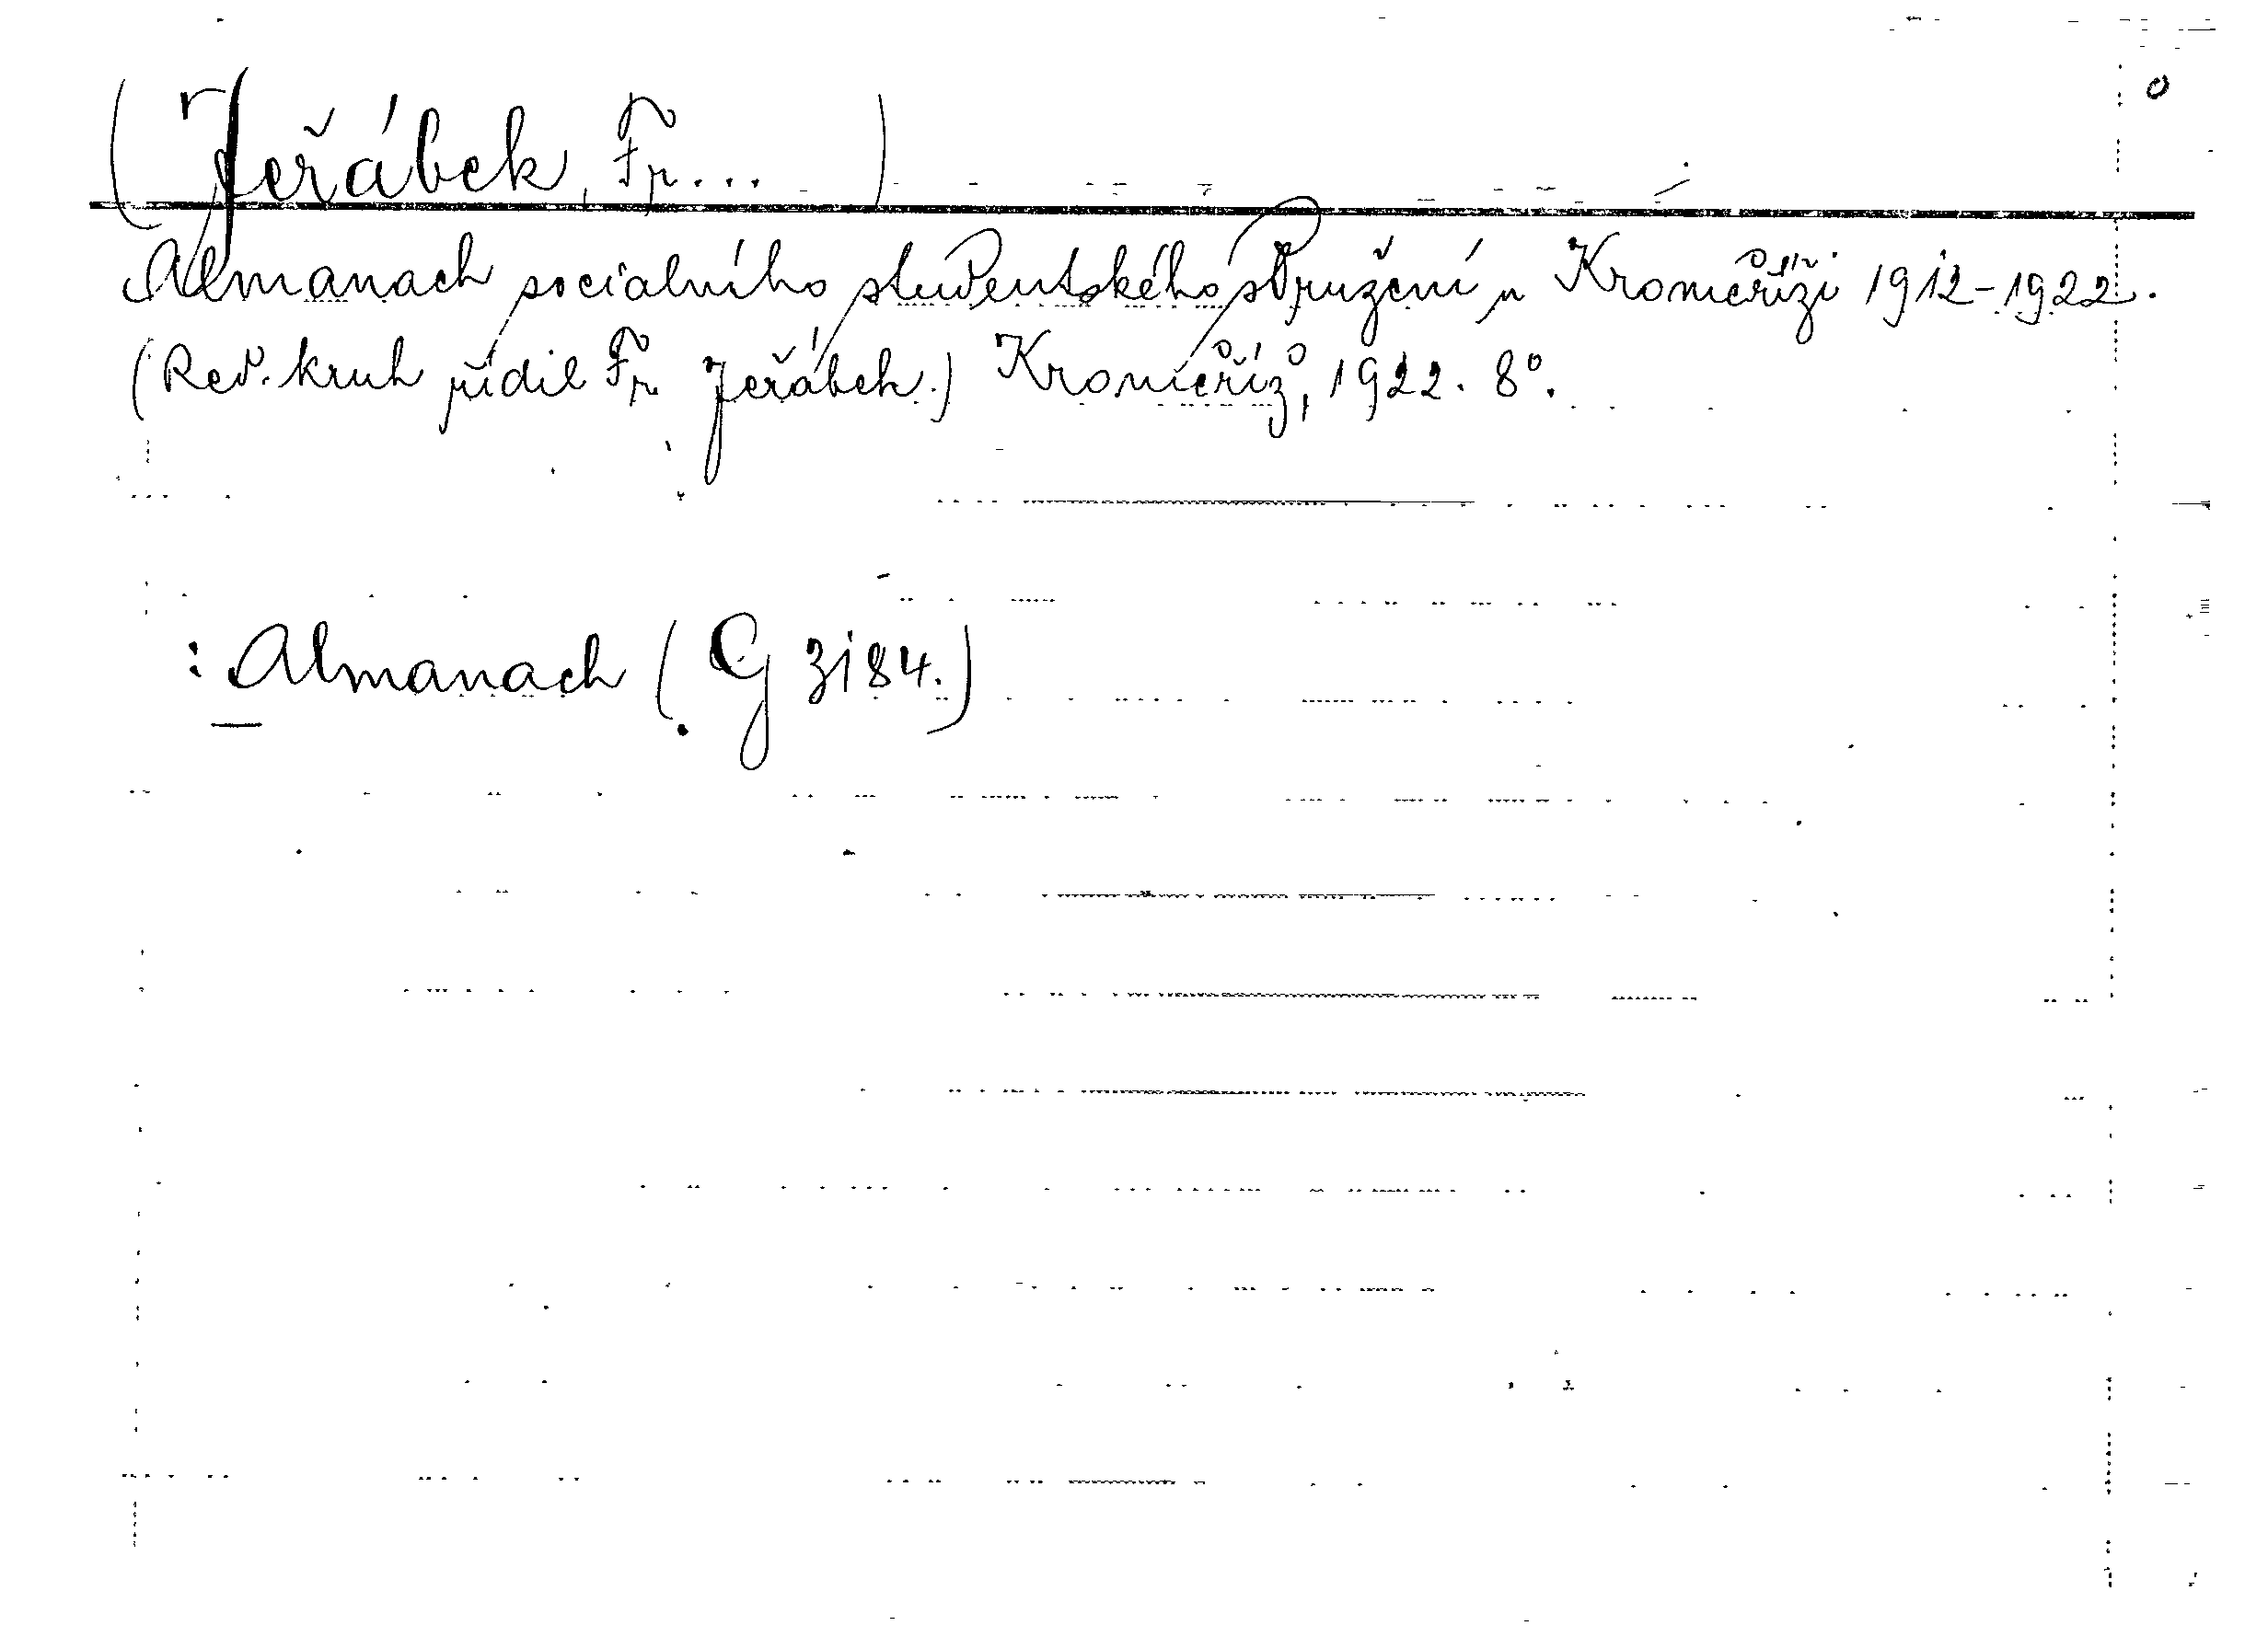 (Jeřábek, Fr...)
Almanach socialního studentského sdružení v Kroměříži 1912-1922.
(Red. kruh řídil Fr. Jeřábek.) Kroměříž, 1922. 8°.
: Almanach (G 3184.)